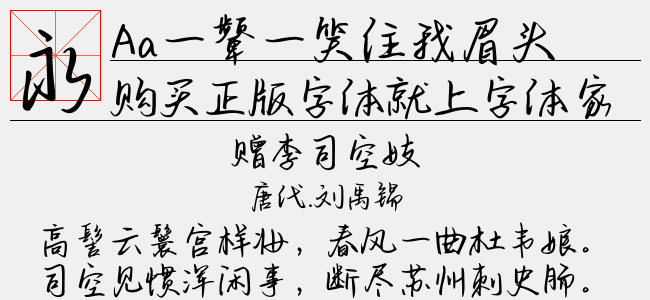 永
Aa一颦一笑住我眉头
购买正版字体就上字体家
赠李司空妓
唐代.刘禹锡
高髻云鬟宫样妆，春风一曲杜韦娘。
司空见惯浑闲事，断尽苏州刺史肠。